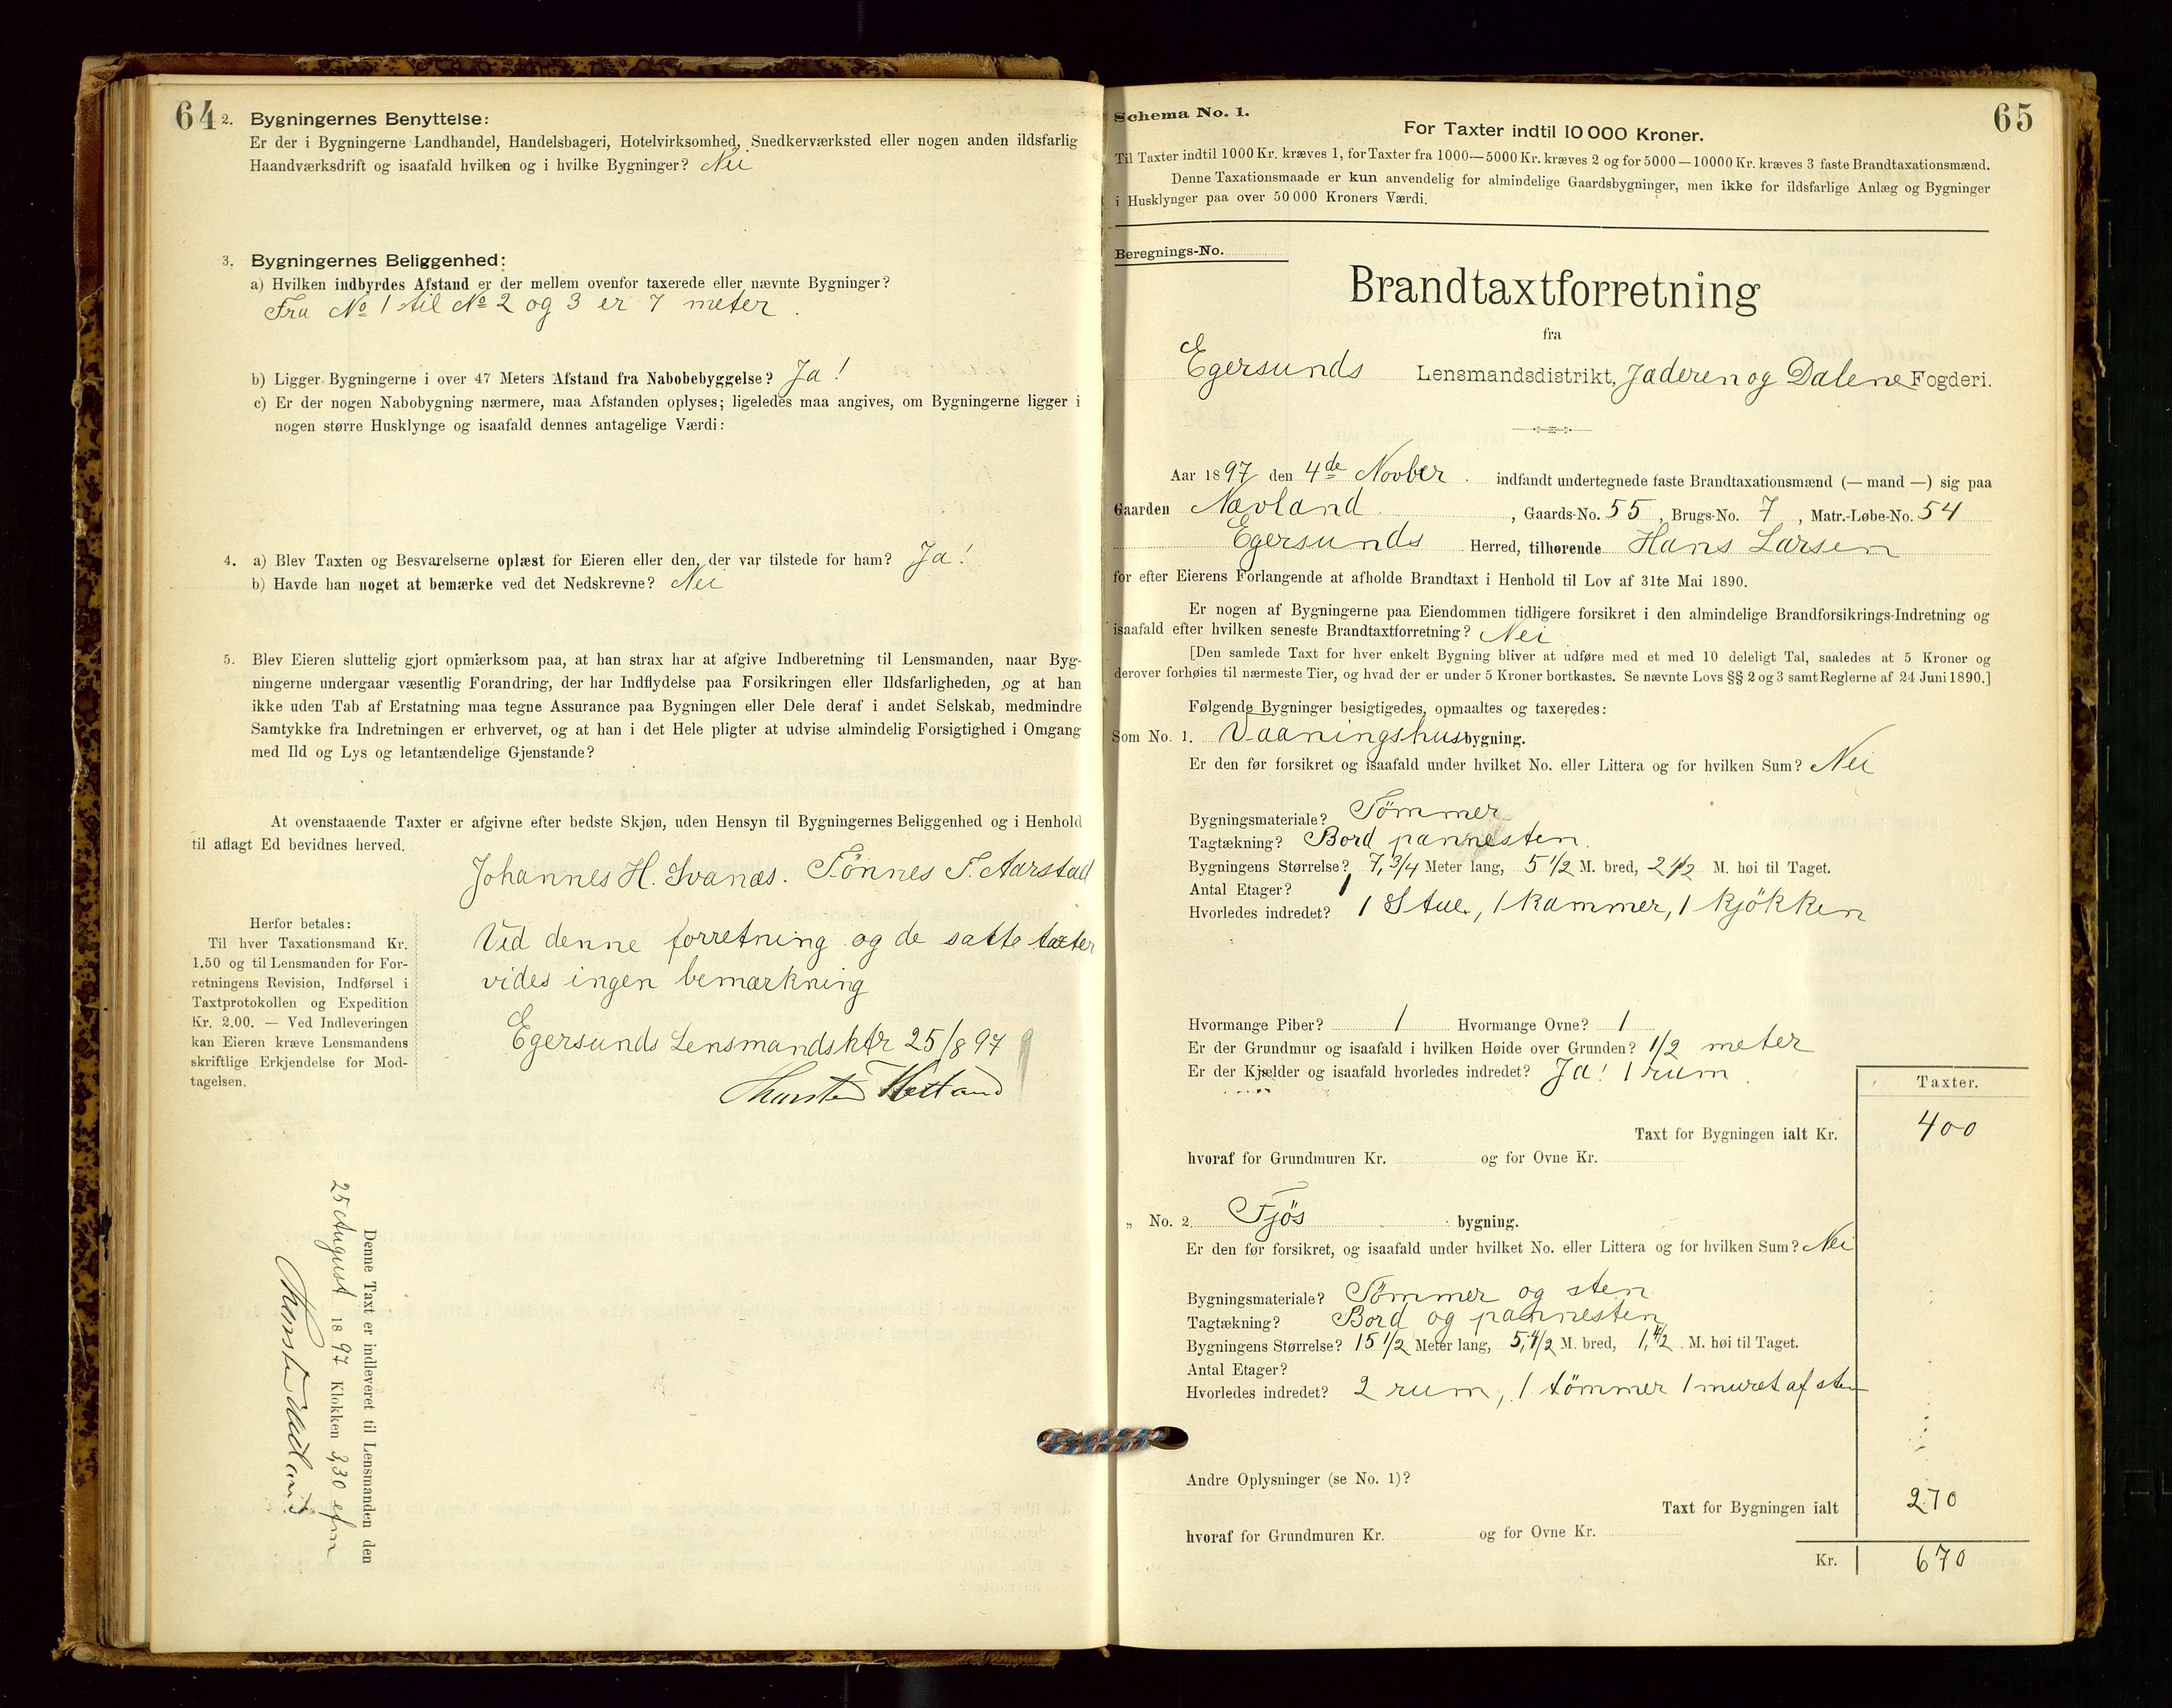 64
2. Bygningernes Benyttelse:
Er der i Bygningerne Landhandel, Handelsbageri, Hotelvirksomhed, Snedkerværksted eller nogen anden ildsfarlig
Haandværksdrift og isaafald hvilken og i hvilke Bygninger? Nei
3. Bygningernes Beliggenhed:
a) Hvilken indbyrdes Afstand er der mellem ovenfor taxerede eller nævnte Bygninger?
Fra No 1 til No 2 og 3 er 7 meter.
b) Ligger Bygningerne i over 47 Meters Afstand fra Nabobebyggelse? Ja!
c) Er der nogen Nabobygning nærmere, maa Afstanden oplyses; ligeledes maa angives, om Bygningerne ligger i
nogen større Husklynge og isaafald dennes antagelige Værdi:
4. a) Blev Taxten og Besvarelserne oplæst for Eieren eller den, der var tilstede for ham? Ja!
b) Havde han noget at bemærke ved det Nedskrevne? Nei
5. Blev Eieren sluttelig gjort opmærksom paa, at han strax har at afgive Indberetning til Lensmanden, naar Byg-
ningerne undergaar væsentlig Forandring, der har Indflydelse paa Forsikringen eller Ildsfarligheden, og at han
ikke uden Tab af Erstatning maa tegne Assurance paa Bygningen eller Dele deraf i andet Selskab, medmindre
Samtykke fra Indretningen er erhvervet, og at han i det Hele pligter at udvise almindelig Forsigtighed i Omgang
med Ild og Lys og letantændelige Gjenstande?
At ovenstaaende Taxter er afgivne efter bedste Skjøn, uden Hensyn til Bygningernes Beliggenhed og i Henhold
til aflagt Ed bevidnes herved.
Johannes H. Svanæs. Tönnes T. Aarstad
Herfor betales:
Til hver Taxationsmand Kr.
1.50 og til Lensmanden for For-
retningens Revision, Indførsel i
Taxtprotokollen og Expedition
Kr. 2.00. — Ved Indleveringen
kan Eieren kræve Lensmandens
skriftlige Erkjendelse for Mod-
tagelsen.
Ved denne forretning og de satte taxter
vides ingen bemærkning
Egersunds Lensmandsktr 25/8 97
Denne Taxt er indleveret til Lensmanden den
25 August 1897 Klokken 3,30 efm
65
Schema No. 1.
For Taxter indtil 10 000 Kroner.
Til Taxter indtil 1000 Kr. kræves 1, for Taxter fra 1000—5000 Kr. kræves 2 og for 5000—10000 Kr. kræves 3 faste Brandtaxationsmænd.
Denne Taxationsmaade er kun anvendelig for almindelige Gaardsbygninger, men ikke for ildsfarlige Anlæg og Bygninger
i Husklynger paa over 50 000 Kroners Værdi.
Beregnings-No.
Brandtaxtforretning
fra
Egersunds Lensmandsdistrikt, Jæderen og Dalene Fogderi.
Aar 1897 den 4de Novber. indfandt undertegnede faste Brandtaxationsmænd (— mand —) sig paa
Gaarden Nævland, Gaards-No. 55, Brugs-No. 7, Matr.-Løbe-No. 54
Egersunds Herred, tilhørende Hans Larsen
for efter Eierens Forlangende at afholde Brandtaxt i Henhold til Lov af 31te Mai 1890.
Er nogen af Bygningerne paa Eiendommen tidligere forsikret i den almindelige Brandforsikrings-Indretning og
isaafald efter hvilken seneste Brandtaxtforretning? Nei
[Den samlede Taxt for hver enkelt Bygning bliver at udføre med et med 10 deleligt Tal, saaledes at 5 Kroner og
derover forhøies til nærmeste Tier, og hvad der er under 5 Kroner bortkastes. Se nævnte Lovs §§ 2 og 3 samt Reglerne af 24 Juni 1890.]
Følgende Bygninger besigtigedes, opmaaltes og taxeredes:
Som No. 1. Vaaningshusbygning.
Er den før forsikret og isaafald under hvilket No. eller Littera og for hvilken Sum? Nei
Bygningsmateriale? Tömmer
Tagtækning? Bord pannesten.
Bygningens Størrelse? 7,3/4 Meter lang, 5 1/2 M. bred, 2 1/2 M. høi til Taget.
Antal Etager? 1
Hvorledes indredet? 1 Stue, 1 kammer, 1 kjökken
Hvormange Piber? 1 Hvormange Ovne? 1
Er der Grundmur og isaafald i hvilken Høide over Grunden? 1/2 meter
Er der Kjælder og isaafald hvorledes indredet? Ja! 1 rum
Taxter.
Taxt for Bygningen ialt Kr. 400
hvoraf for Grundmuren Kr. og for Ovne Kr.
„ No. 2. Fjös bygning.
Er den før forsikret, og isaafald under hvilket No. eller Littera og for hvilken Sum? Nei
Bygningsmateriale? Tömmer og sten
Tagtækning? Bord og pannesten
Bygningens Størrelse? 15 1/2 Meter lang, 5,1/2 M. bred, 1,1/2 M. høi til Taget.
Antal Etager?
Hvorledes indredet? 2 rum, 1 tömmer 1 muret af sten
Andre Oplysninger (se No. 1)?
Taxt for Bygningen ialt 270
hvoraf for Grundmuren Kr. og for Ovne Kr.
Kr. 670